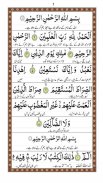 بِسْمِ اللّٰهِ الرَّحْمٰنِ الرَّحِيْمِ
اَلْحَمْدُ لِلّٰهِ رَبِّ الْعٰلَمِيْنَ الرَّحْمٰنِ
الرَّحِيْمِ مٰلِكِ يَوْمِ الدِّيْنِ اِيَّاكَ
نَعْبُدُ وَاِيَّاكَ نَسْتَعِيْنُ اِهْدِنَا الصِّرَاطَ
الْمُسْتَقِيْمَ صِرَاطَ الَّذِيْنَ
اَنْعَمْتَ عَلَيْهِمْ غَيْرِ الْمَغْضُوْبِ عَلَيْهِمْ
وَلَا الضَّآلِّيْنَ
بِسْمِ اللّٰهِ الرَّحْمٰنِ الرَّحِيْمِ
الٓمّٓ ذٰلِكَ الْكِتٰبُ لَا رَيْبَ فِيْهِ